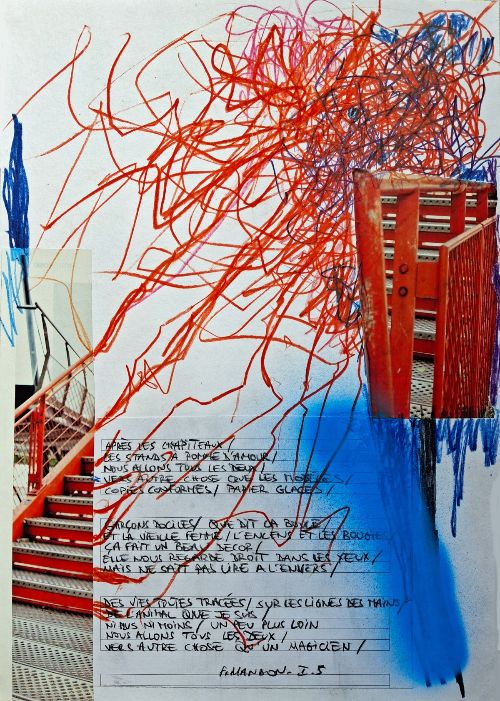 APRES LES CHAPITEAUX /
LES STANDS A POMME D'AMOUR /
NOUS ALLONS TOUS LES DEUX /
VERS AUTRE CHOSE QUE LES MODELES
COPIES CONFORMES / PAPIER GLACES /
GARCONS DOCILES / QUE DIT LA BOULE /
ET LA VIEILLE FEMME / L'ENCENS ET LES BOUGIES
ÇA FAIT UN BEAU DECOR /
ELLE NOUS REGARDE DROIT DANS LES YEUX /
MAIS NE SAIT PAS LIRE A L'ENVERS /
DES VIES TOUTES TRACÉES / SUR LES LIGNES DES MAINS /
DE L'ANIMAL QUE JE SUIS /
NI PLUS NI MOINS / UN PEU PLUS LOIN
NOUS ALLONS TOUS LES DEUX /
VERS AUTRE CHOSE QU'UN MAGICIEN /